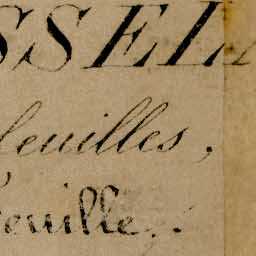 SSEL
feuilles,
feuille.